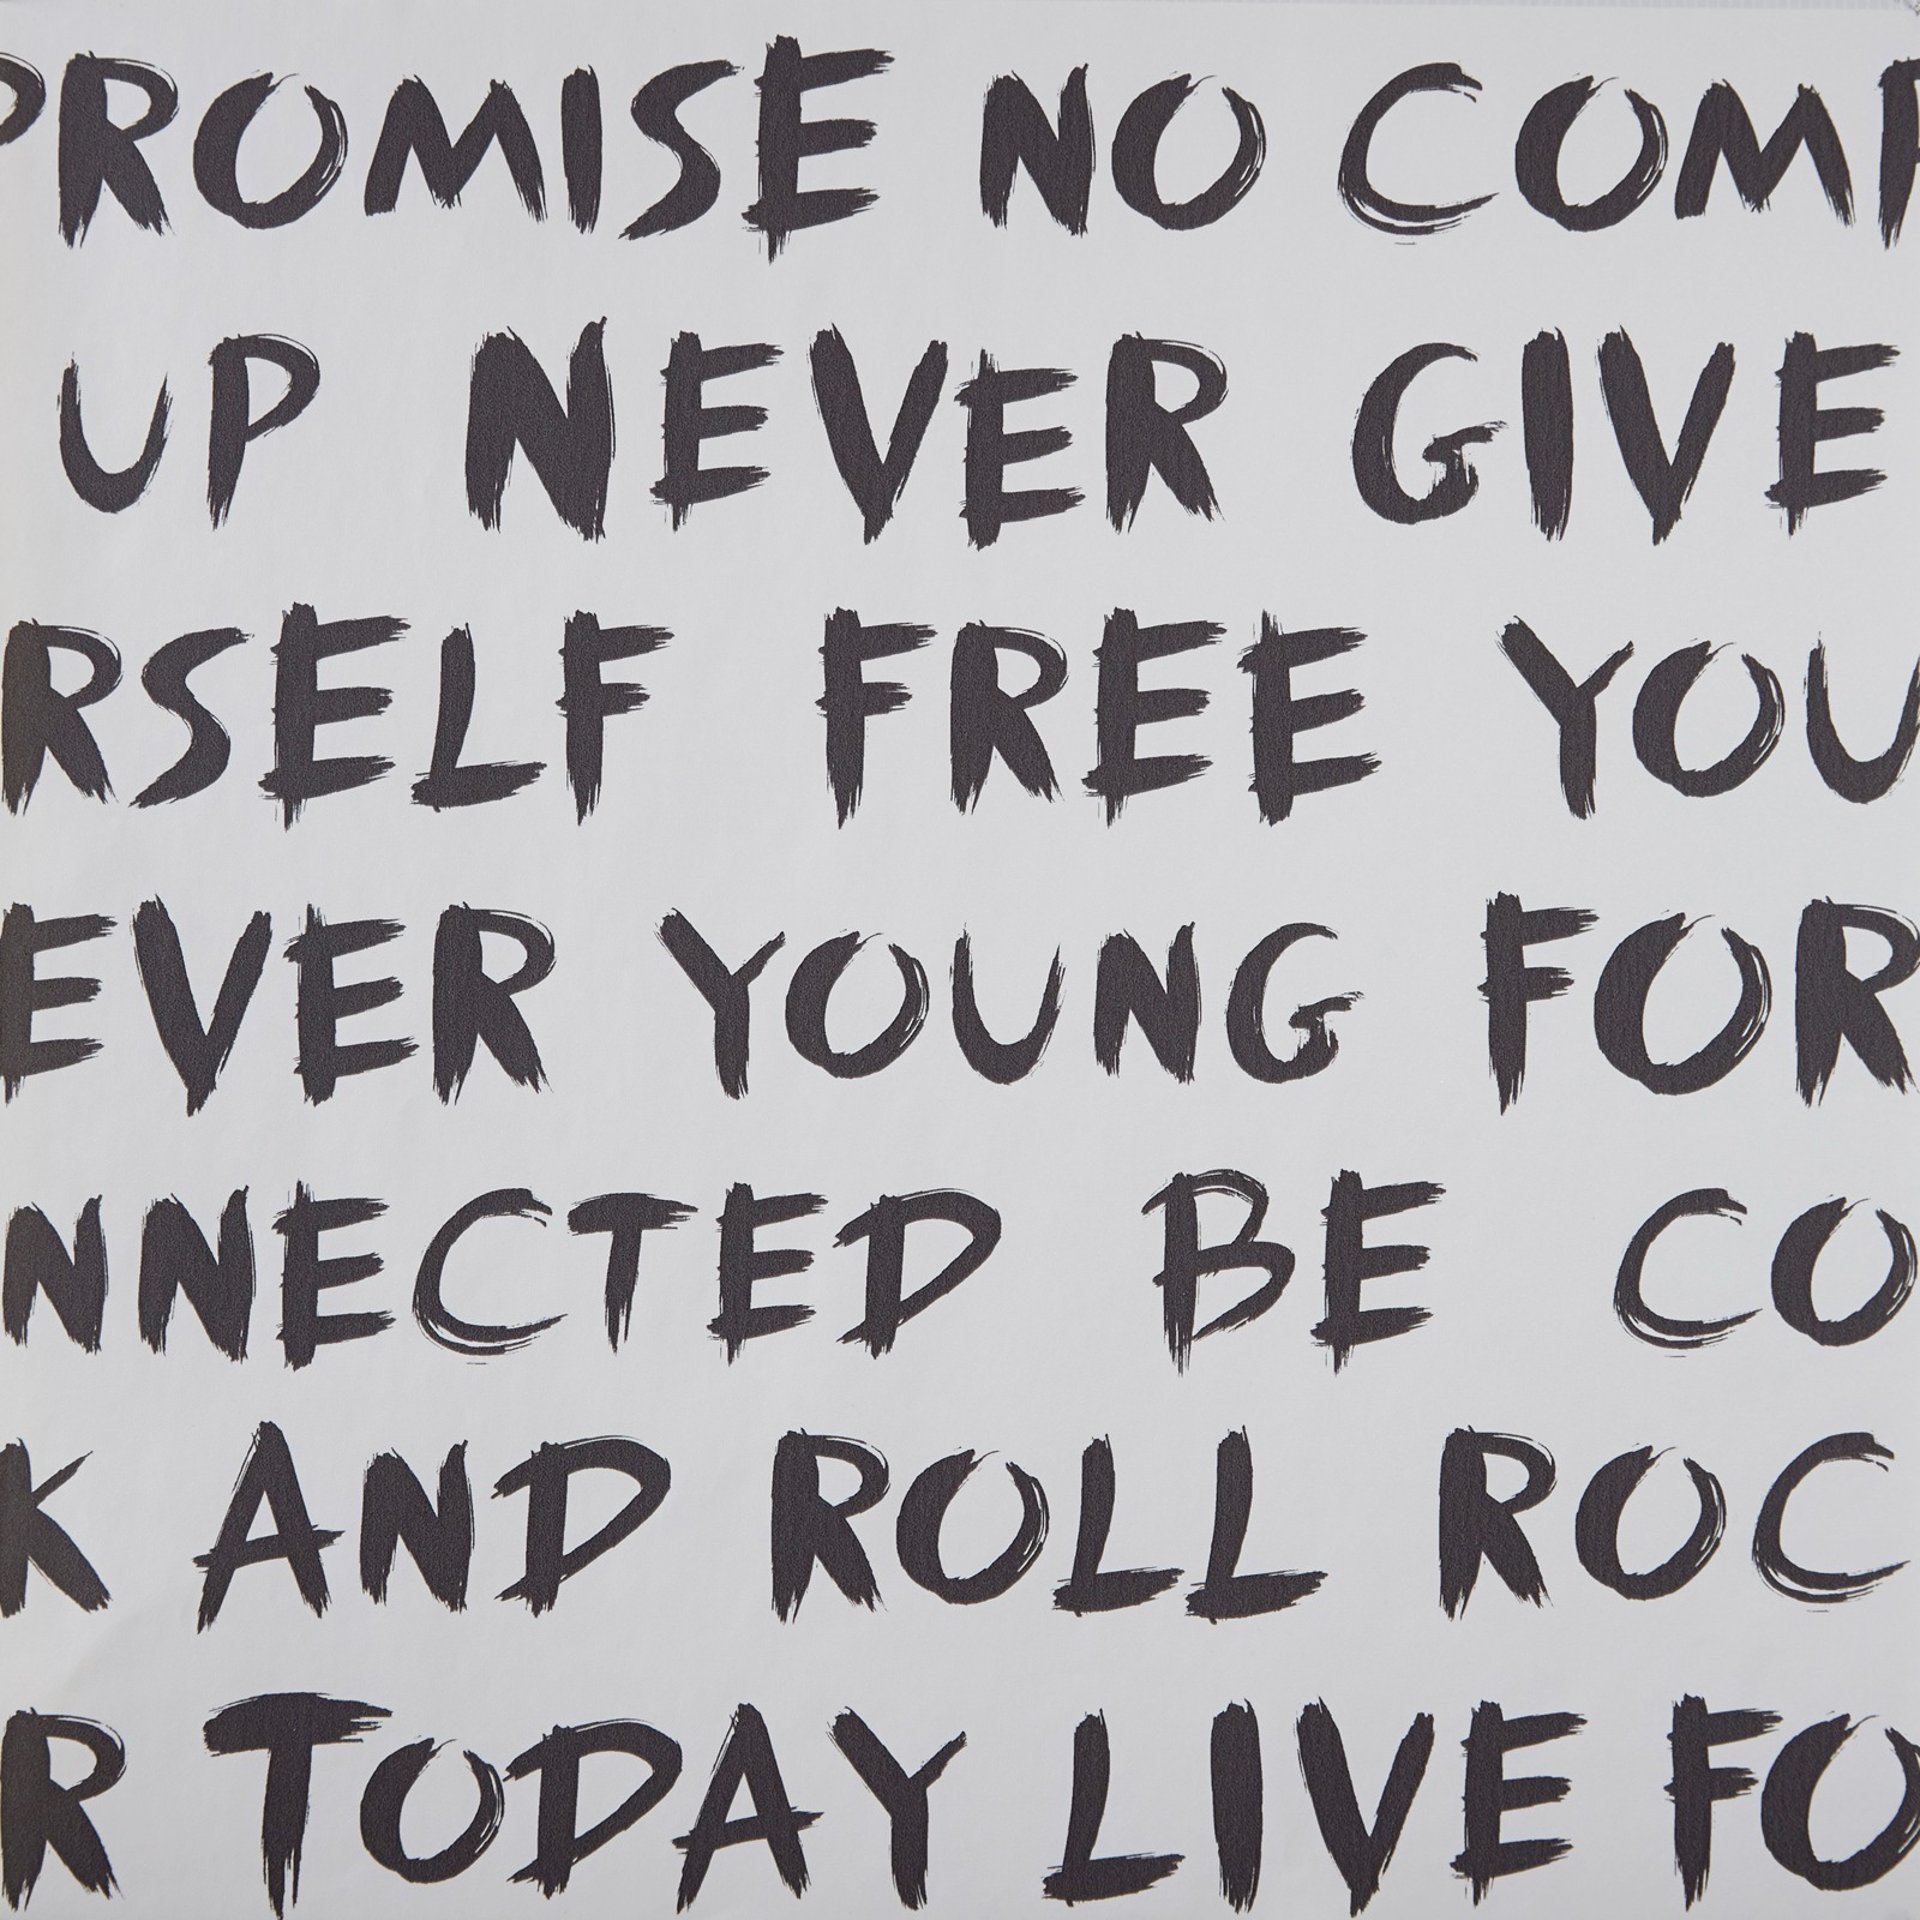 PROMISE NO COMP
UP NEVER GIVE
RSELF FREE YOU
EVER YOUNG FOR
NNECTED BE CO
K AND ROLL ROC
R TODAY LIVE FO